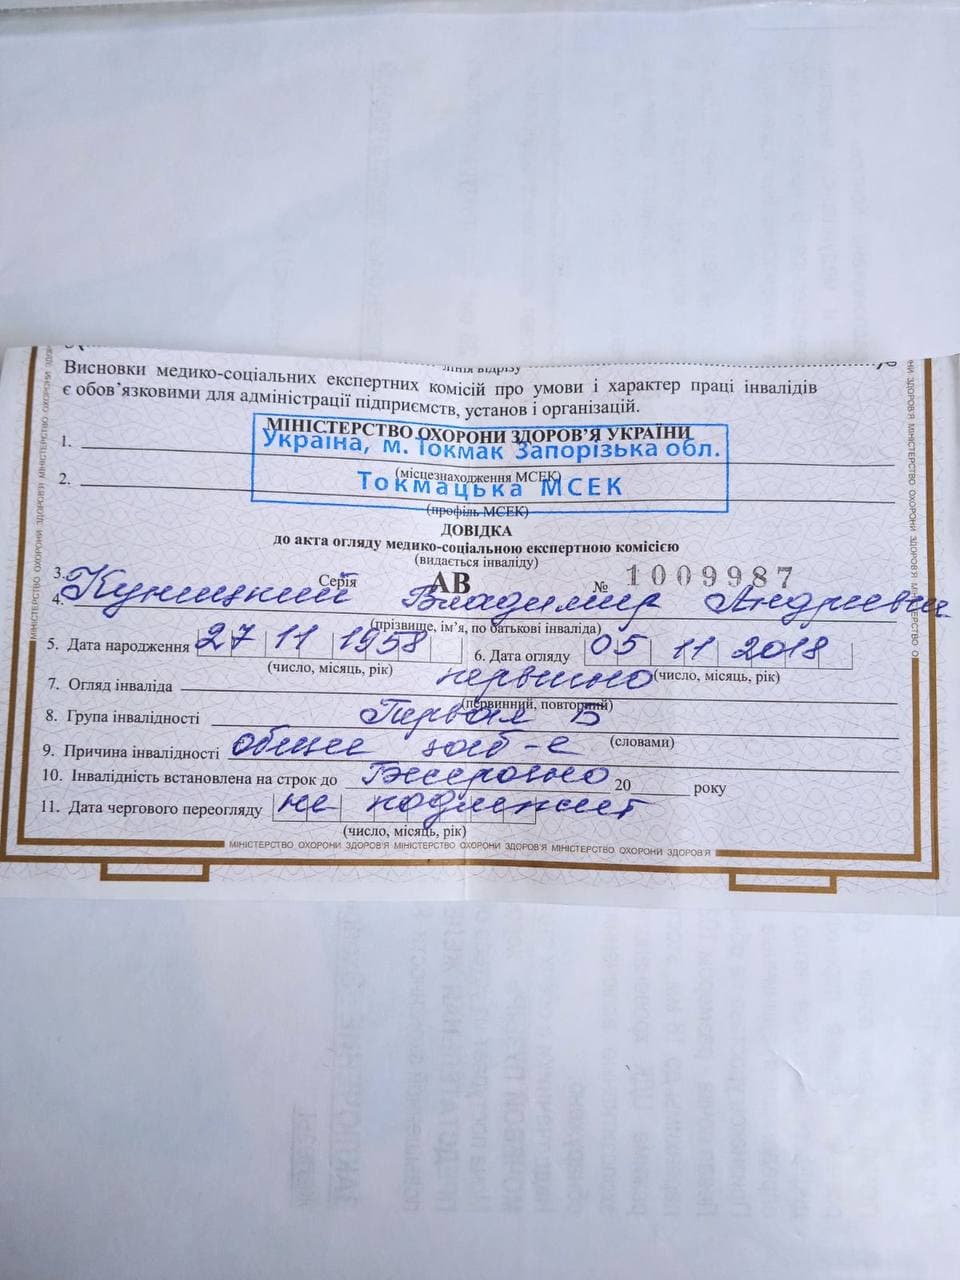 лінія відрізу
Висновки медико-соціальних експертних комісій про умови і характер праці інвалідів
є обов’язковими для адміністрації підприємств, установ і організацій.
МІНІСТЕРСТВО ОХОРОНИ ЗДОРОВ’Я УКРАЇНИ
1.
Україна, м. Токмак Запорізька обл.
(місцезнаходження МСЕК)
2.
Токмацька МСЕК
(профіль МСЕК)
ДОВІДКА
до акта огляду медико-соціальною експертною комісією
(видається інваліду)
3. Серія АВ № 1009987
4. Куницкий Владимир Андреевич
(прізвище, ім’я, по батькові інваліда)
5. Дата народження 27 11 1958 6. Дата огляду 05 11 2018
(число, місяць, рік) (число, місяць, рік)
7. Огляд інваліда первино
(первинний, повторний)
8. Група інвалідності Первая Б
(словами)
9. Причина інвалідності общее заб-е
10. Інвалідність встановлена на строк до Бессрочно 20 року
11. Дата чергового переогляду не подлежит
(число, місяць, рік)
МІНІСТЕРСТВО ОХОРОНИ ЗДОРОВ’Я МІНІСТЕРСТВО ОХОРОНИ ЗДОРОВ’Я МІНІСТЕРСТВО ОХОРОНИ ЗДОРОВ’Я